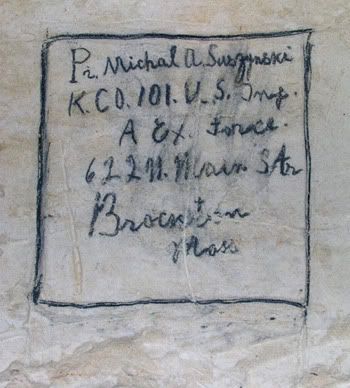 Pr. Michal A. Suszynski
K. CO. 101. U. S. Ing.
A Ex. Force.
622 N. Main Str
Brockton
Mass